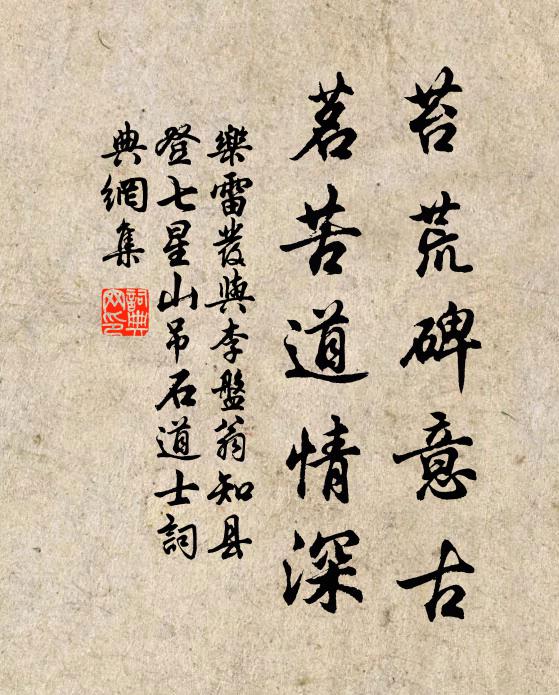 苔荒碑意古
茗苦道情深
樂雷發與李盤翁知县
登七星山吊石道士詞
典網集
詞典
网印